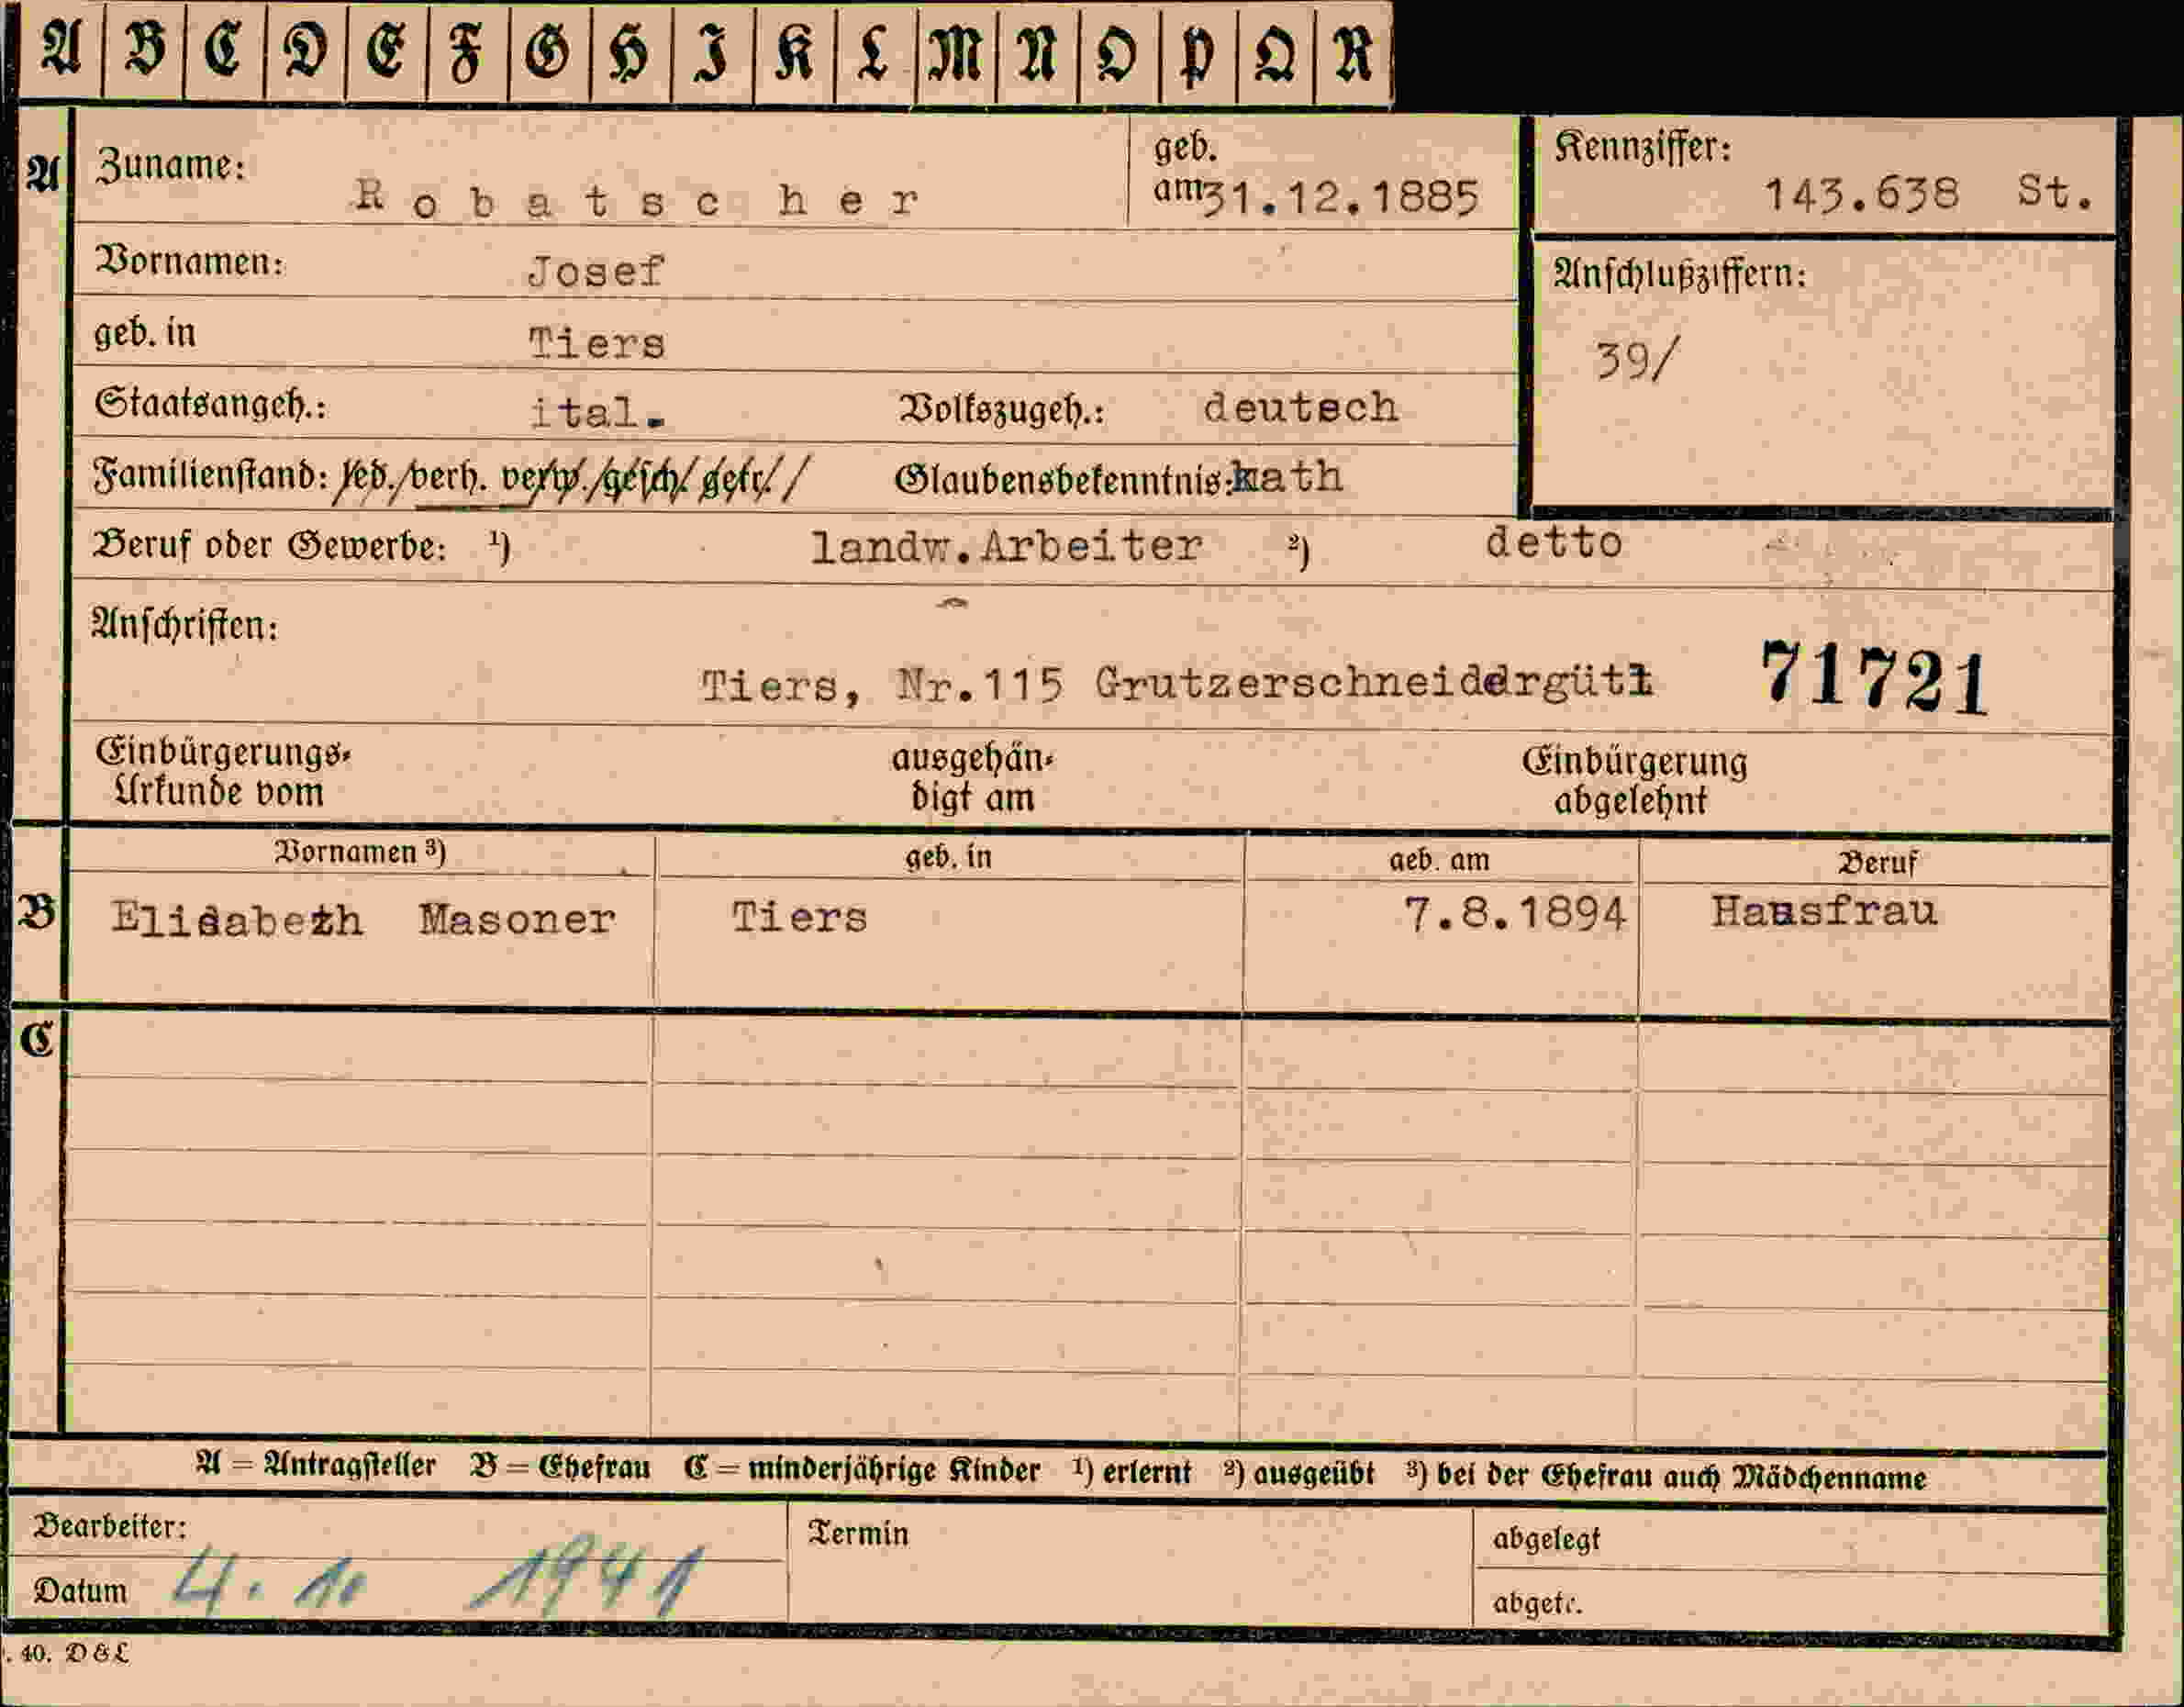 A B C D E F G H I K L M N O P Q R
A Zuname: Robatscher geb. am 31.12.1885 Kennziffer: 143.638 St.
Vornamen: Josef Anschlußziffern:
geb. in Tiers 39/
Staatsangeh.: ital. Volkszugeh.: deutsch
Familienstand: led./verh. verw./gesch/ getr./ Glaubensbekenntnis: kath
Beruf oder Gewerbe: 1) landw.Arbeiter 2) detto
Anschriften:
Tiers, Nr.115 Grutzerschneidergütl 71721
Einbürgerungs- ausgehän- Einbürgerung
Urkunde vom digt am abgelehnt
Vornamen 3) geb. in geb. am Beruf
B Elisabeth Masoner Tiers 7.8.1894 Hausfrau
C
A = Antragsteller B = Ehefrau C = minderjährige Kinder 1) erlernt 2) ausgeübt 3) bei der Ehefrau auch Mädchenname
Bearbeiter: Termin abgelegt
Datum 4. 10 1941 abgetr.
. 40. D & L